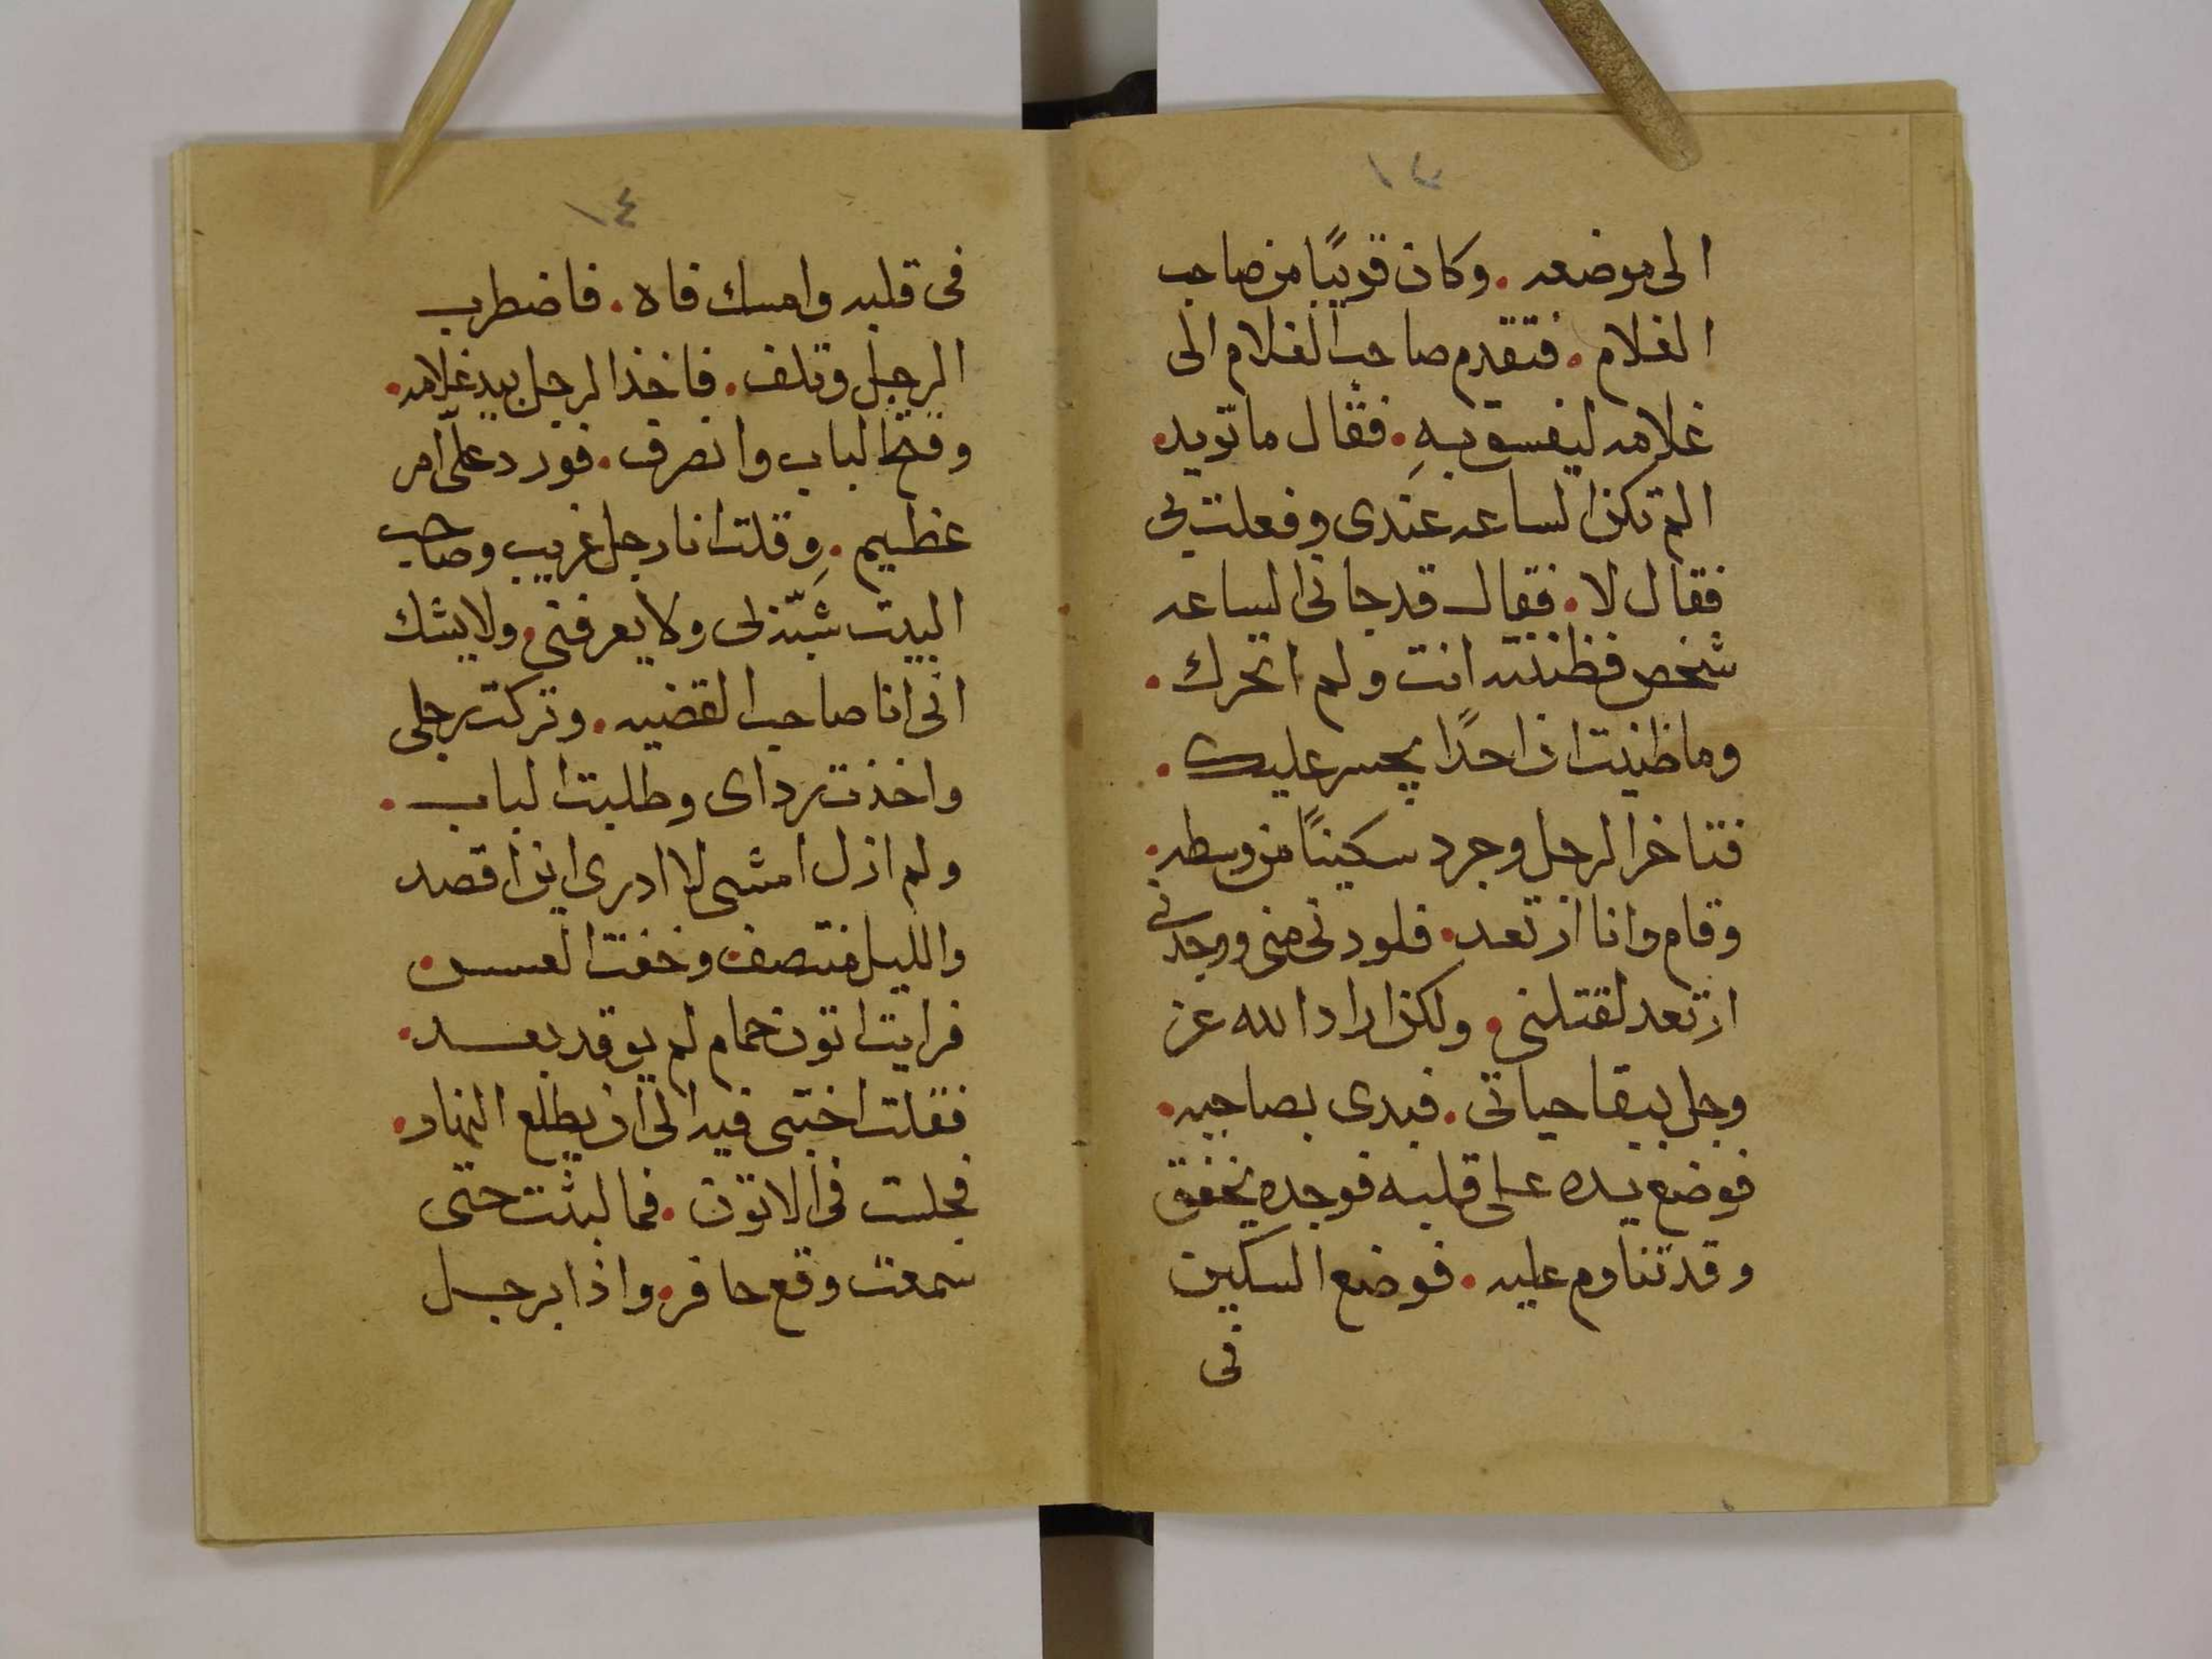 ١٣
الى موضعه . وكان قريبًا من صاحب
الغلام . فتقدم صاحب الغلام الى
غلامه ليفسق بهِ . فقال ما تريد .
الم تكن الساعه عندى وفعلت بى
فقال لا . فقال قد جانى الساعه
شخص فظننته انت ولم اتحرك .
وما ظنيت ان احدًا يجسر عليك .
فتاخر الرجل وجرد سكينًا من وسطه .
وقام وانا ارتعد . فلو دنى منى ووجدنى
ارتعد لقتلنى . ولكن اراد الله عز
وجل ببقا حياتى . فبدى بصاحبه .
فوضع يده على قلبه فوجده يخفق
وقد تناوم عليه . فوضع السكين
فى
١٤
فى قلبه وامسك فاه . فاضطرب
الرجل وتلف . فاخذ الرجل بيد غلامه .
وفتح الباب وانصرف . فورد علىّ امر
عظيم . وقلت انا رجل غريب وصاحب
البيت ينتبه لى ولا يعرفنى . ولا يشك
انى انا صاحب القضيه . وتركت رحلى
واخذت رداى وطلبت الباب .
ولم ازل امشى لا ادرى اين اقصد
والليل منتصف وخفت العسس .
فرايت اتون حمام لم يوقد بعد .
فقلت اختبى فيه الى ان يطلع النهار .
فجلست فى الاتون . فما لبثت حتى
سمعت وقع حافر . واذا برجل